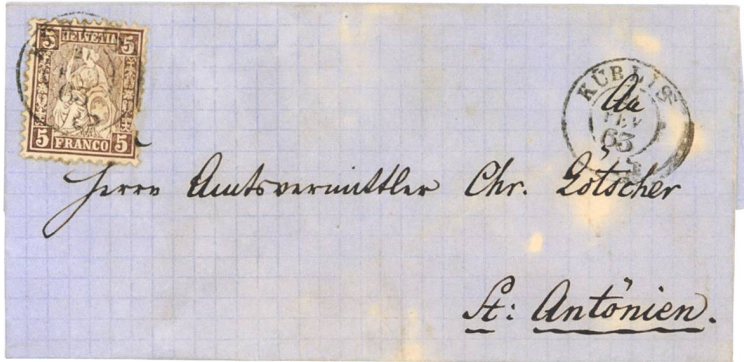 5 HELVETIA 5
5 FRANCO 5
63
KÜBLIS
An
FEV
63
Herrn Amtsvermittler Chr. Lötscher
St: Antönien.